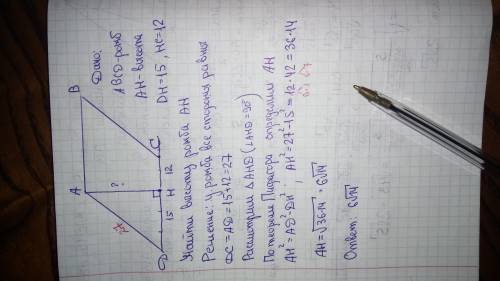 Дано:
ABCD-ромб
AH-высота
DH=15, HC=12
B
A
C
D
H
?
12
15
27
Найти высоту ромба AH
Решение: у ромба все стороны равны
DC=AD=15+12=27
Рассмотрим △AHD (∠AHD=90°)
По теореме Пифагора определим AH
AH²=AD²-DH² ; AH²=27²-15²=12·42=36·14
AH=√36·14 = 6√14
Ответ: 6√14